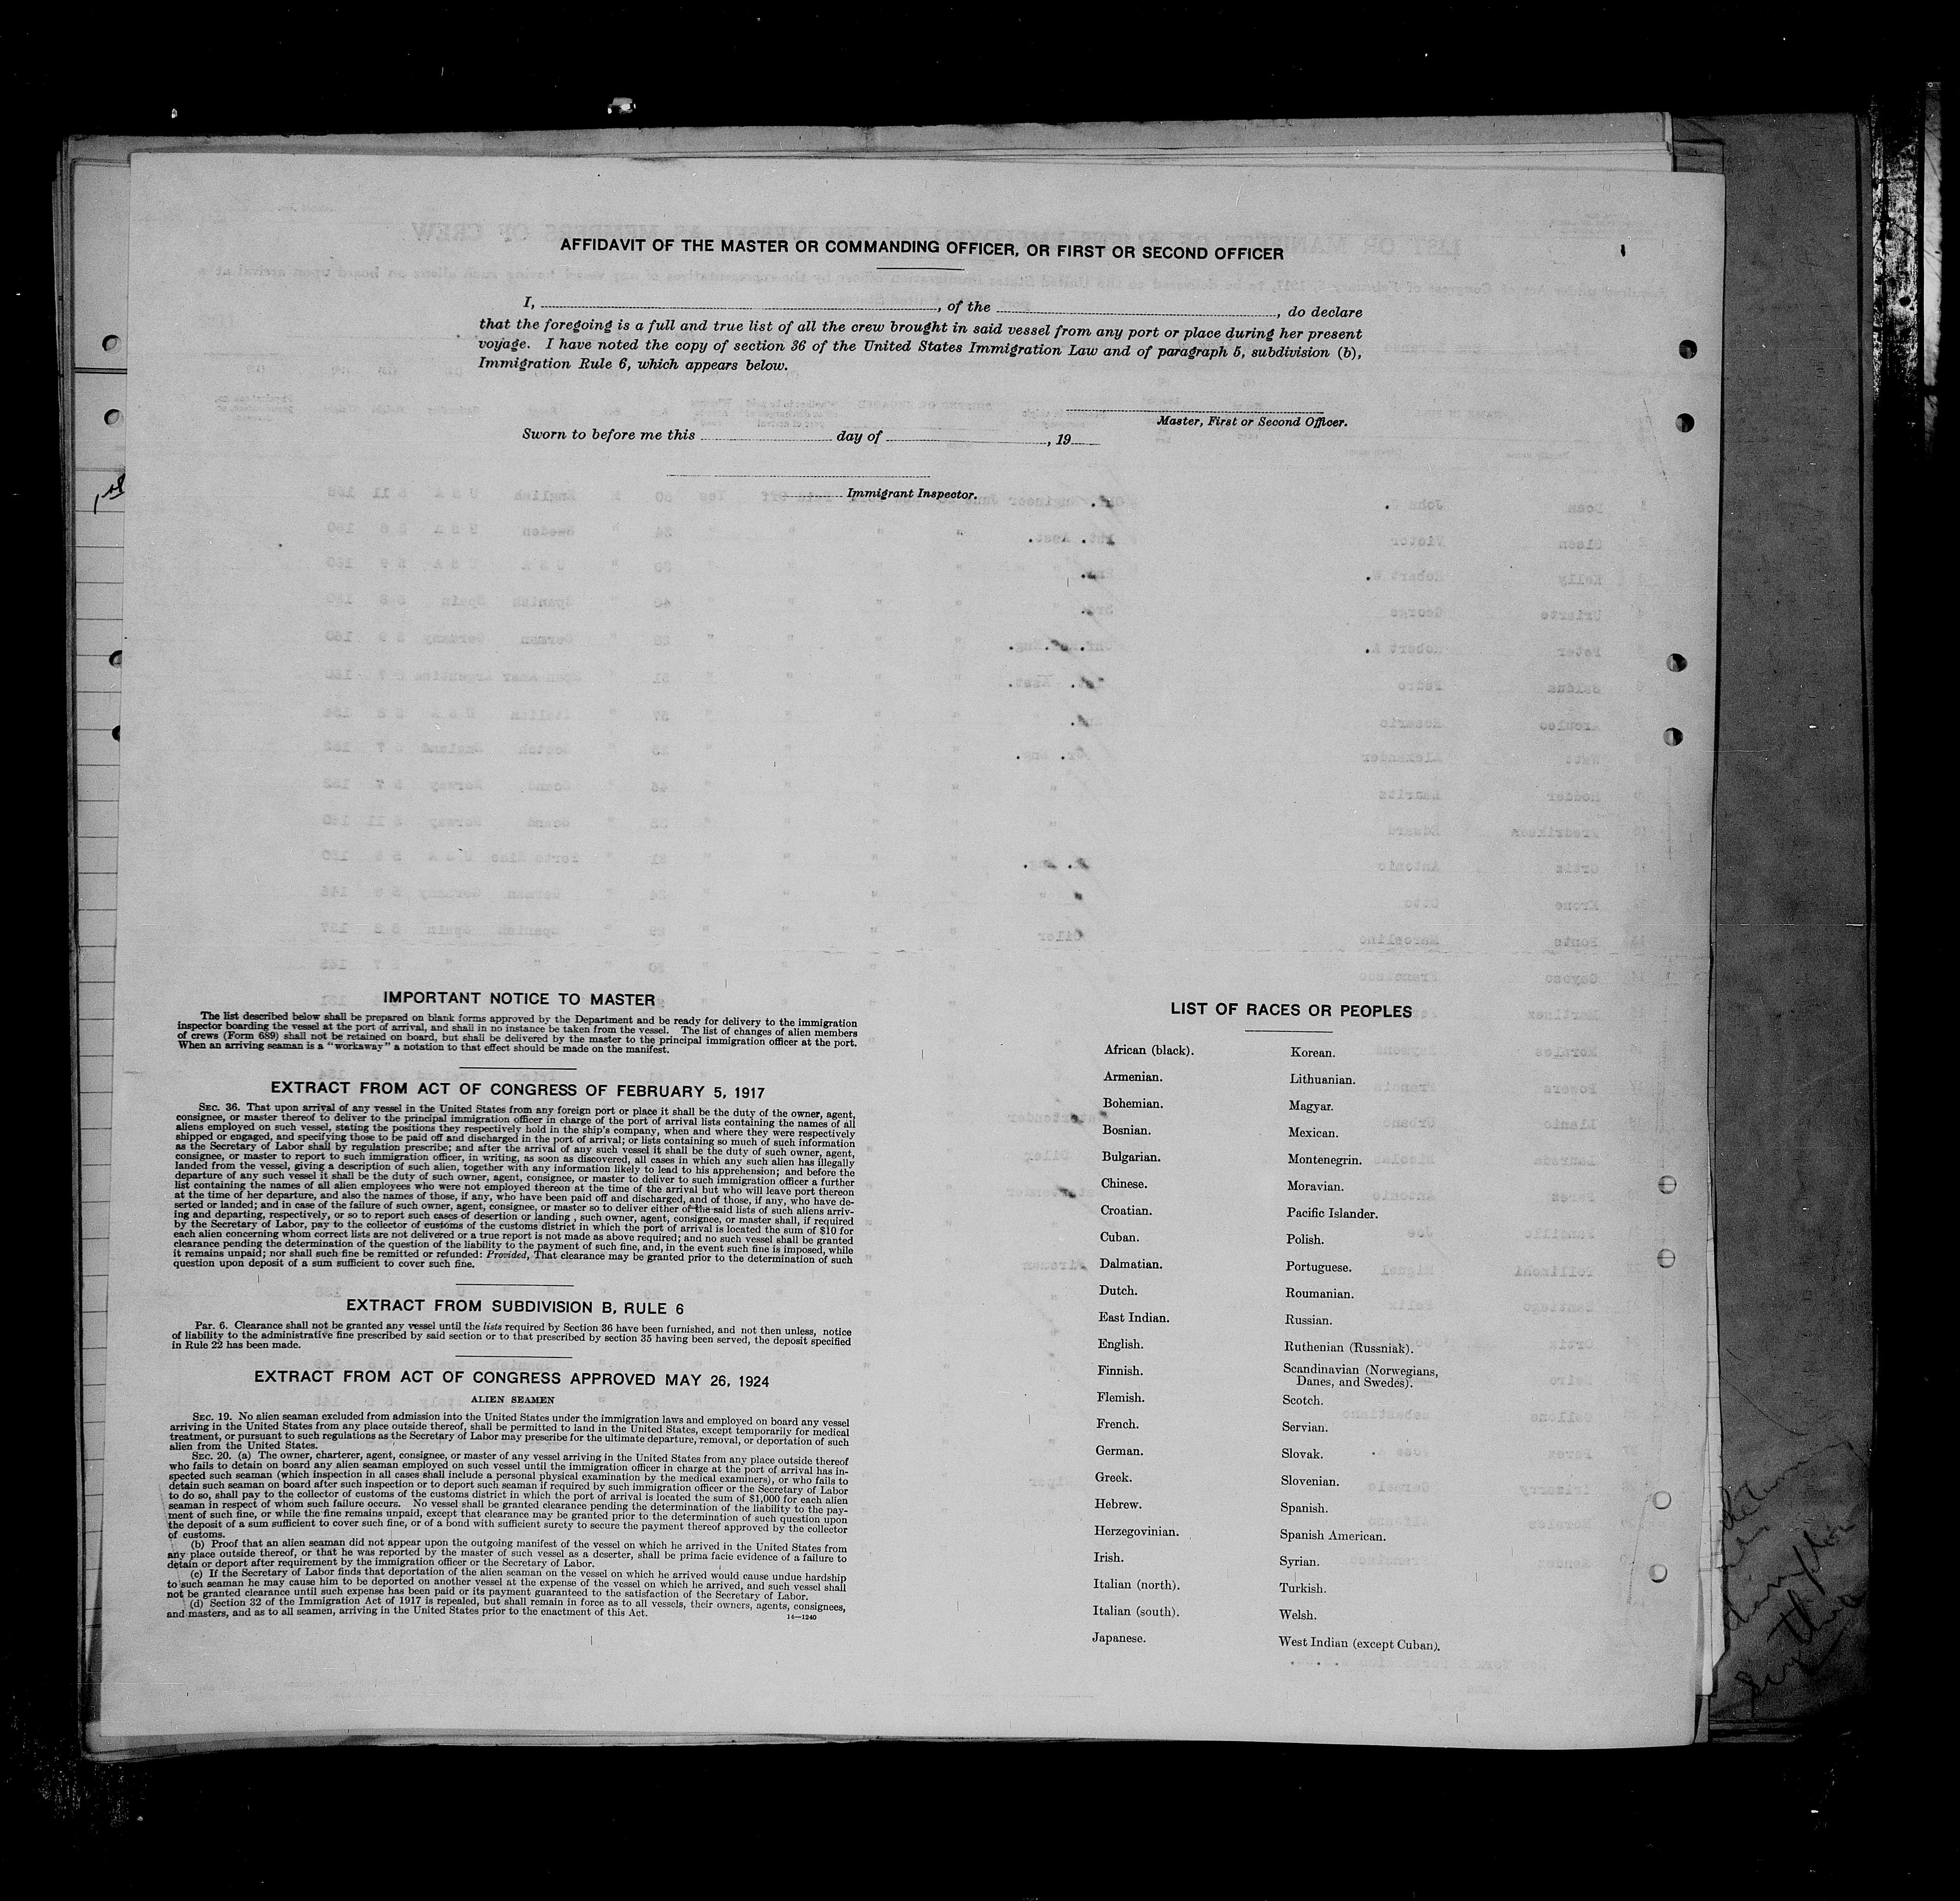 AFFIDAVIT OF THE MASTER OR COMMANDING OFFICER, OR FIRST OR SECOND OFFICER
I, , of the , do declare
that the foregoing is a full and true list of all the crew brought in said vessel from any port or place during her present
voyage. I have noted the copy of section 36 of the United States Immigration Law and of paragraph 5, subdivision (b),
Immigration Rule 6, which appears below.
Master, First or Second Officer.
Sworn to before me this day of , 19
Immigrant Inspector.
1st
IMPORTANT NOTICE TO MASTER
The list described below shall be prepared on blank forms approved by the Department and be ready for delivery to the immigration
inspector boarding the vessel at the port of arrival, and shall in no instance be taken from the vessel. The list of changes of alien members
of crews (Form 689) shall not be retained on board, but shall be delivered by the master to the principal immigration officer at the port.
When an arriving seaman is a "workaway" a notation to that effect should be made on the manifest.
EXTRACT FROM ACT OF CONGRESS OF FEBRUARY 5, 1917
SEC. 36. That upon arrival of any vessel in the United States from any foreign port or place it shall be the duty of the owner, agent,
consignee, or master thereof to deliver to the principal immigration officer in charge of the port of arrival lists containing the names of all
aliens employed on such vessel, stating the positions they respectively hold in the ship's company, when and where they were respectively
shipped or engaged, and specifying those to be paid off and discharged in the port of arrival; or lists containing so much of such information
as the Secretary of Labor shall by regulation prescribe; and after the arrival of any such vessel it shall be the duty of such owner, agent,
consignee, or master to report to such immigration officer, in writing, as soon as discovered, all cases in which any such alien has illegally
landed from the vessel, giving a description of such alien, together with any information likely to lead to his apprehension; and before the
departure of any such vessel it shall be the duty of such owner, agent, consignee, or master to deliver to such immigration officer a further
list containing the names of all alien employees who were not employed thereon at the time of the arrival but who will leave port thereon
at the time of her departure, and also the names of those, if any, who have been paid off and discharged, and of those, if any, who have de-
serted or landed; and in case of the failure of such owner, agent, consignee, or master so to deliver either of the said lists of such aliens arriv-
ing and departing, respectively, or so to report such cases of desertion or landing , such owner, agent, consignee, or master shall, if required
by the Secretary of Labor, pay to the collector of customs of the customs district in which the port of arrival is located the sum of $10 for
each alien concerning whom correct lists are not delivered or a true report is not made as above required; and no such vessel shall be granted
clearance pending the determination of the question of the liability to the payment of such fine, and, in the event such fine is imposed, while
it remains unpaid; nor shall such fine be remitted or refunded: Provided, That clearance may be granted prior to the determination of such
question upon deposit of a sum sufficient to cover such fine.
EXTRACT FROM SUBDIVISION B, RULE 6
Par. 6. Clearance shall not be granted any vessel until the lists required by Section 36 have been furnished, and not then unless, notice
of liability to the administrative fine prescribed by said section or to that prescribed by section 35 having been served, the deposit specified
in Rule 22 has been made.
EXTRACT FROM ACT OF CONGRESS APPROVED MAY 26, 1924
ALIEN SEAMEN
SEC. 19. No alien seaman excluded from admission into the United States under the immigration laws and employed on board any vessel
arriving in the United States from any place outside thereof, shall be permitted to land in the United States, except temporarily for medical
treatment, or pursuant to such regulations as the Secretary of Labor may prescribe for the ultimate departure, removal, or deportation of such
alien from the United States.
SEC. 20. (a) The owner, charterer, agent, consignee, or master of any vessel arriving in the United States from any place outside thereof
who fails to detain on board any alien seaman employed on such vessel until the immigration officer in charge at the port of arrival has in-
spected such seaman (which inspection in all cases shall include a personal physical examination by the medical examiners), or who fails to
detain such seaman on board after such inspection or to deport such seaman if required by such immigration officer or the Secretary of Labor
to do so, shall pay to the collector of customs of the customs district in which the port of arrival is located the sum of $1,000 for each alien
seaman in respect of whom such failure occurs. No vessel shall be granted clearance pending the determination of the liability to the pay-
ment of such fine, or while the fine remains unpaid, except that clearance may be granted prior to the determination of such question upon
the deposit of a sum sufficient to cover such fine, or of a bond with sufficient surety to secure the payment thereof approved by the collector
of customs.
(b) Proof that an alien seaman did not appear upon the outgoing manifest of the vessel on which he arrived in the United States from
any place outside thereof, or that he was reported by the master of such vessel as a deserter, shall be prima facie evidence of a failure to
detain or deport after requirement by the immigration officer or the Secretary of Labor.
(c) If the Secretary of Labor finds that deportation of the alien seaman on the vessel on which he arrived would cause undue hardship
to such seaman he may cause him to be deported on another vessel at the expense of the vessel on which he arrived, and such vessel shall
not be granted clearance until such expense has been paid or its payment guaranteed to the satisfaction of the Secretary of Labor.
(d) Section 32 of the Immigration Act of 1917 is repealed, but shall remain in force as to all vessels, their owners, agents, consignees,
and masters, and as to all seamen, arriving in the United States prior to the enactment of this Act.
14—1240
LIST OF RACES OR PEOPLES
African (black).
Armenian.
Bohemian.
Bosnian.
Bulgarian.
Chinese.
Croatian.
Cuban.
Dalmatian.
Dutch.
East Indian.
English.
Finnish.
Flemish.
French.
German.
Greek.
Hebrew.
Herzegovinian.
Irish.
Italian (north).
Italian (south).
Japanese.
Korean.
Lithuanian.
Magyar.
Mexican.
Montenegrin.
Moravian.
Pacific Islander.
Polish.
Portuguese.
Roumanian.
Russian.
Ruthenian (Russniak).
Scandinavian (Norwegians,
Danes, and Swedes).
Scotch.
Servian.
Slovak.
Slovenian.
Spanish.
Spanish American.
Syrian.
Turkish.
Welsh.
West Indian (except Cuban).